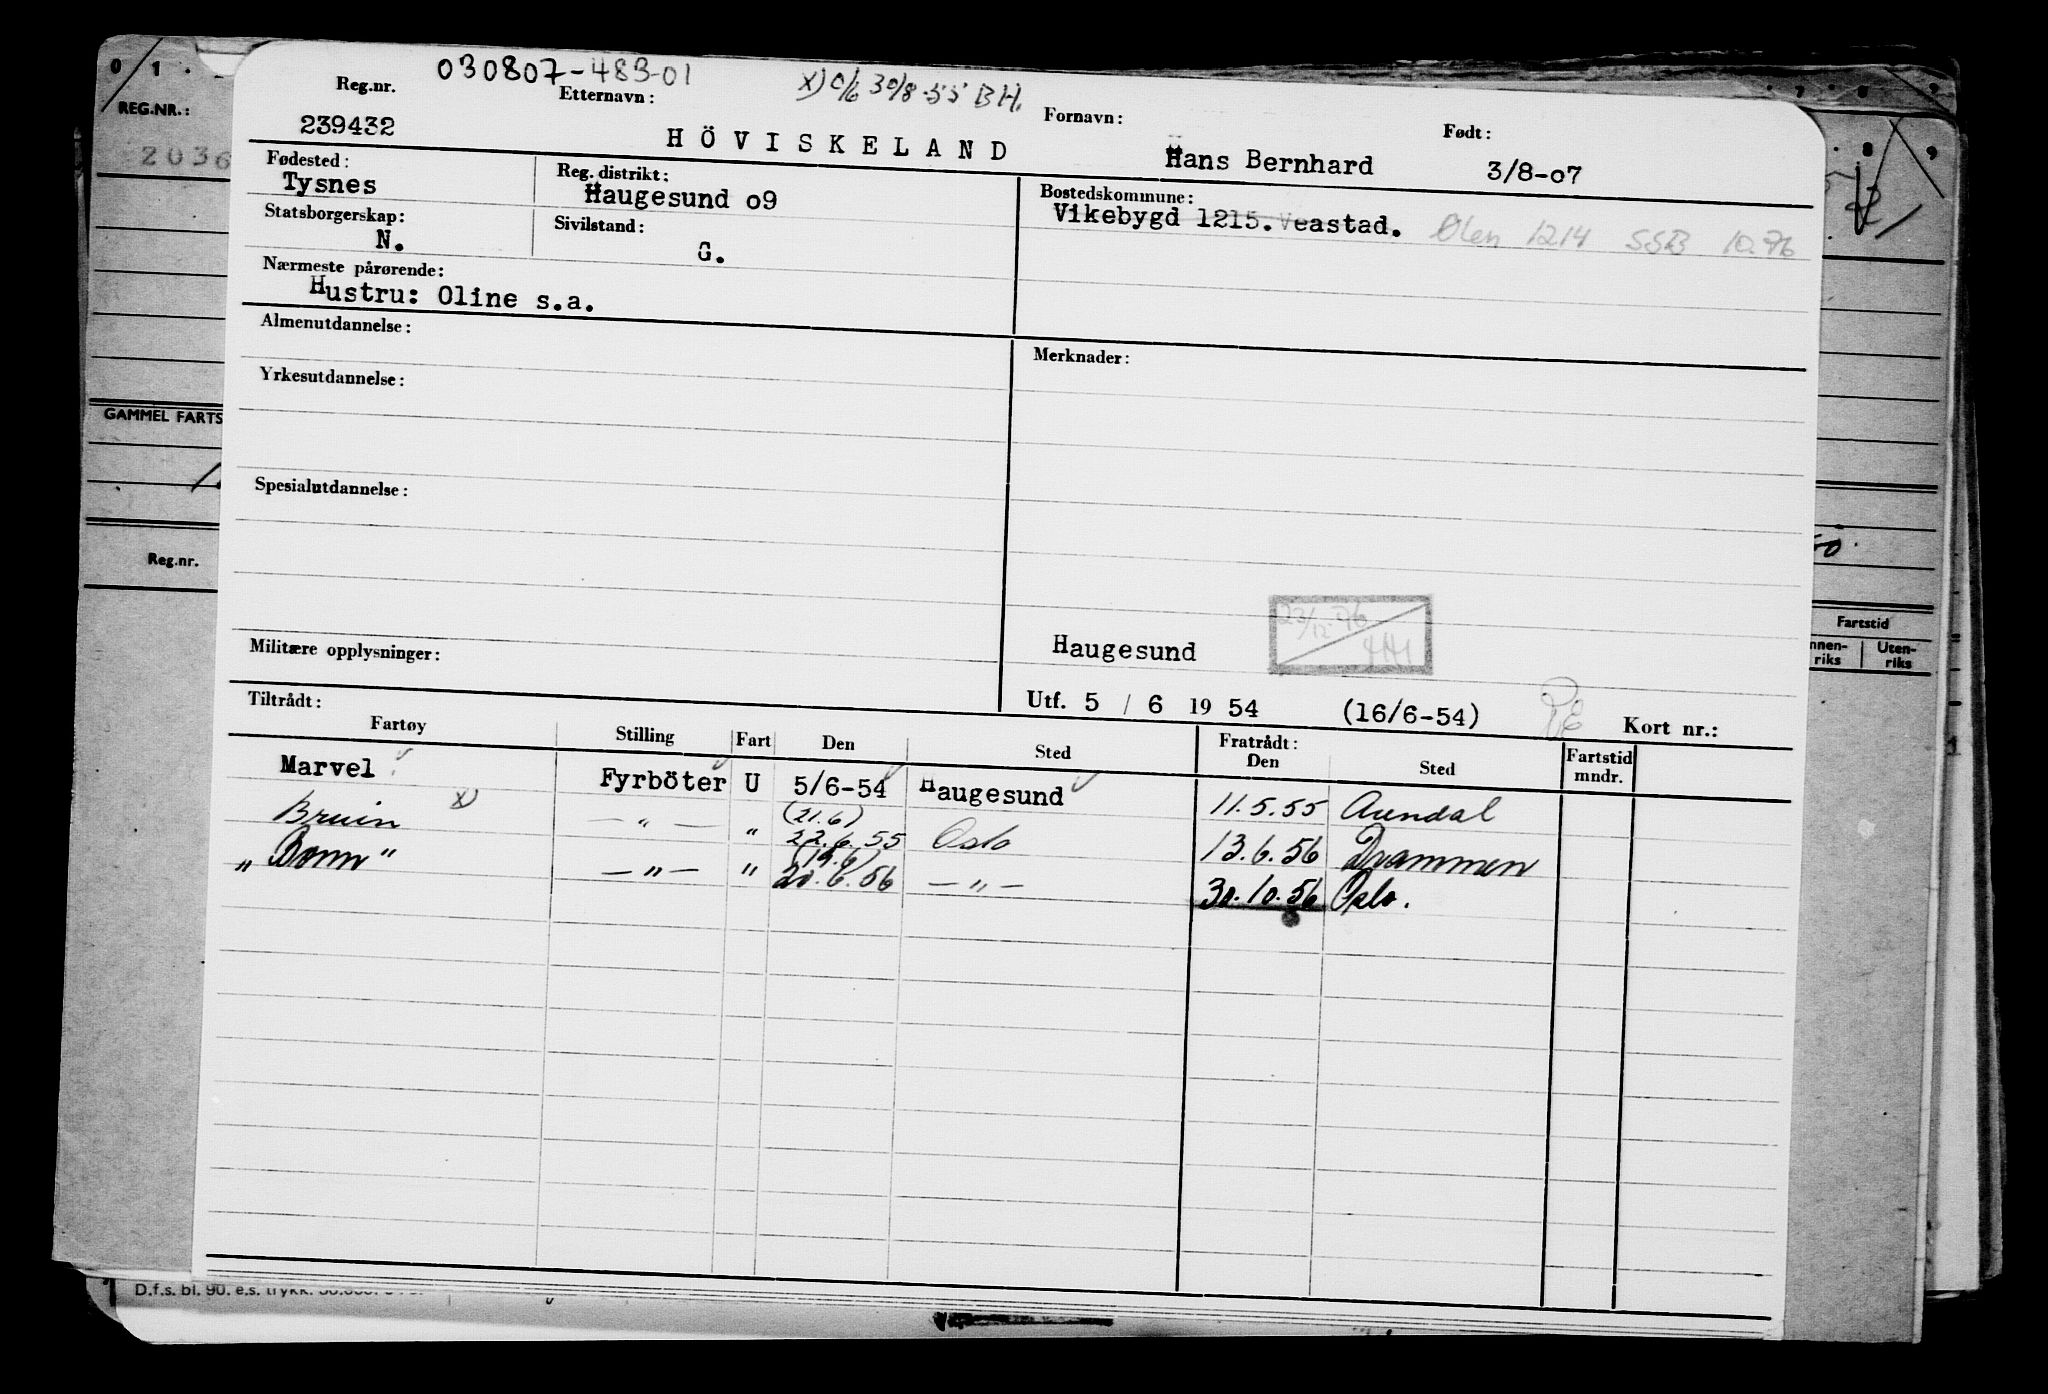 030807-483-01
X) 30/8-55 BH.
Reg.nr. Etternavn: Fornavn: Født:
239432 HÖVISKELAND Hans Bernhard 3/8-07
Fødested: Reg. distrikt: Bostedskommune:
Tysnes Haugesund 09 Vikebygd 1215. Veastad. Ølen 1214 SSB 10.76
Statsborgerskap: Sivilstand:
N. G.
Nærmeste pårørende:
Hustru: Oline s.a.
Almenutdannelse: Merknader:
Yrkesutdannelse:
Spesialutdannelse:
23/12-76
Militære opplysninger: Haugesund
Utf. 5 / 6 19 54 (16/6-54) Kort nr.:
Tiltrådt: Fratrådt:
Fartøy Stilling Fart Den Sted Den Sted Fartstid mndr.
Marvel Fyrböter U 5/6-54 Haugesund 11.5.55 Arendal
Bruin X) — " — " (21.6) 22.6.55 Oslo 13.6.56 Drammen
„Bonn" — " — " (19.6) 20.6.56 — " — 30.10.56 Oslo.
0 1
REG.NR.:
2036
GAMMEL FARTS
Reg.nr.
7 8 9
8 9
Fartstid
nnen-riks Uten-riks
D.f.s. bl. 90. e.s. trykk.